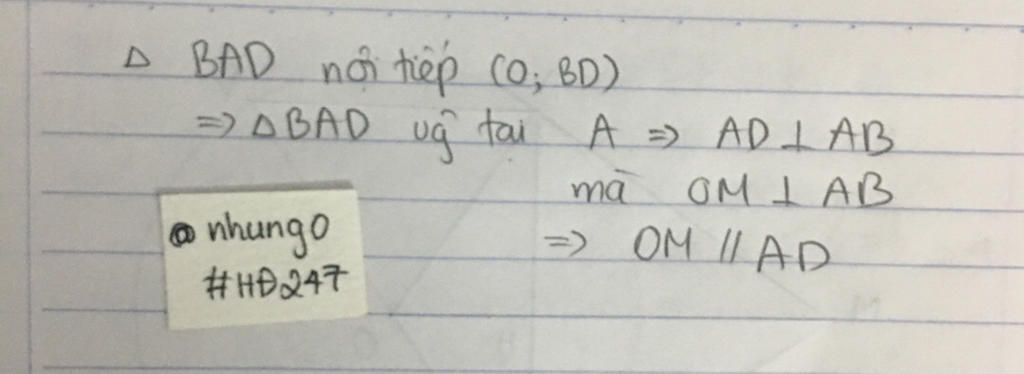 Δ BAD nội tiếp (O; BD)
=> Δ BAD vg tại A => AD ⊥ AB
mà OM ⊥ AB
=> OM // AD
@nhung0
#HĐ247